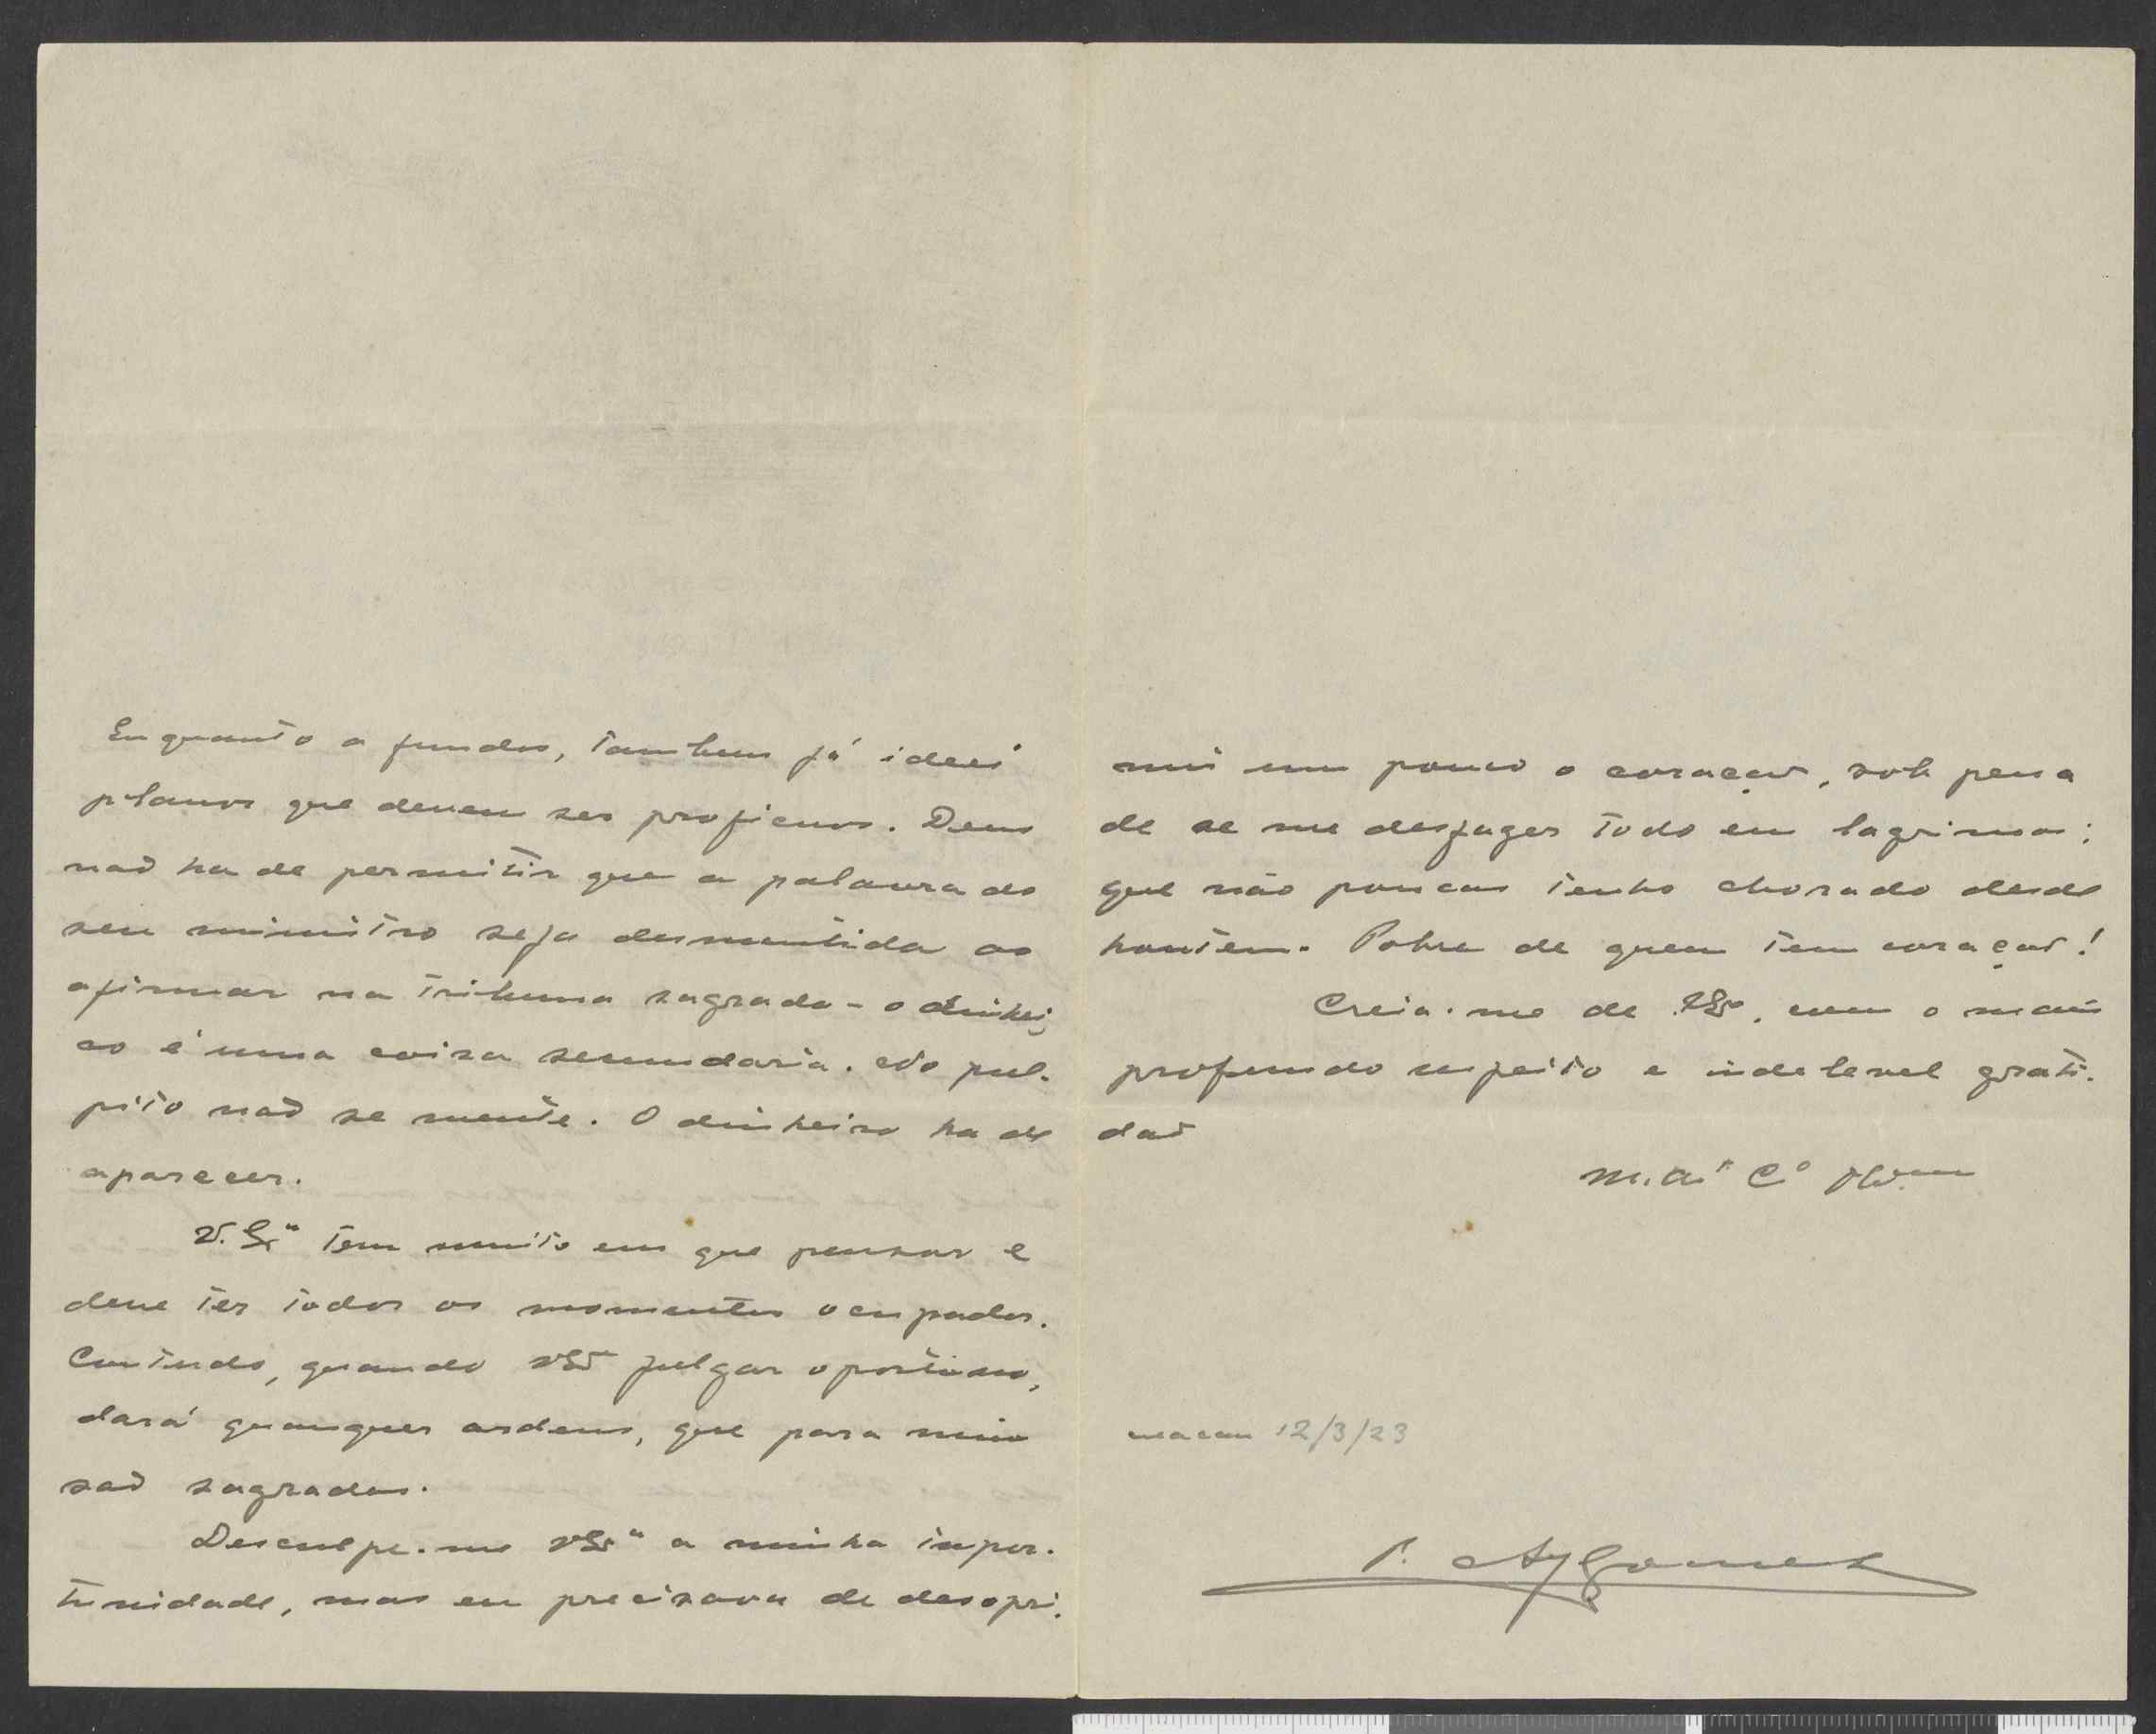 Enquanto a fundos, tambem já ideei
planos que devem ser proficuos. Deus
não ha de permitir que a palavra do
seu ministro seja desmentida ao
afirmar na tribuna sagrada - o dinhei-
ro é uma coisa secundaria. No pul-
pito não se mente. O dinheiro ha de
aparecer.
V. Exª tem muito em que pensar e
deve ter todos os momentos ocupados.
Contudo, quando VExª julgar oportuno,
dará quaisquer ordens, que para mim
são sagradas.
Desculpe-me VExª a minha impor-
tunidade, mas eu precisava de desopri-
mir um pouco o coração, sob pena
de se me desfazer todo em lagrimas;
que não poucas tenho chorado desde
hontem. Pobre de quem tem coração!
Creia-me de VExª, com o mais
profundo respeito e indelevel grati-
dão
M. Cº
Macau 12/3/23
P. A Gomes